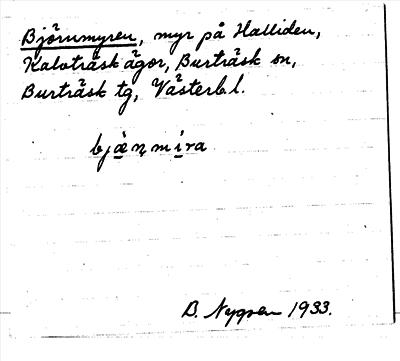 Björnmyren, myr på Halliden,
Kalvträsk ägor, Burträsk sn,
Burträsk tg, Västerb l.
bjæ̀n̥mi̱ra
B. Nygren 1933.